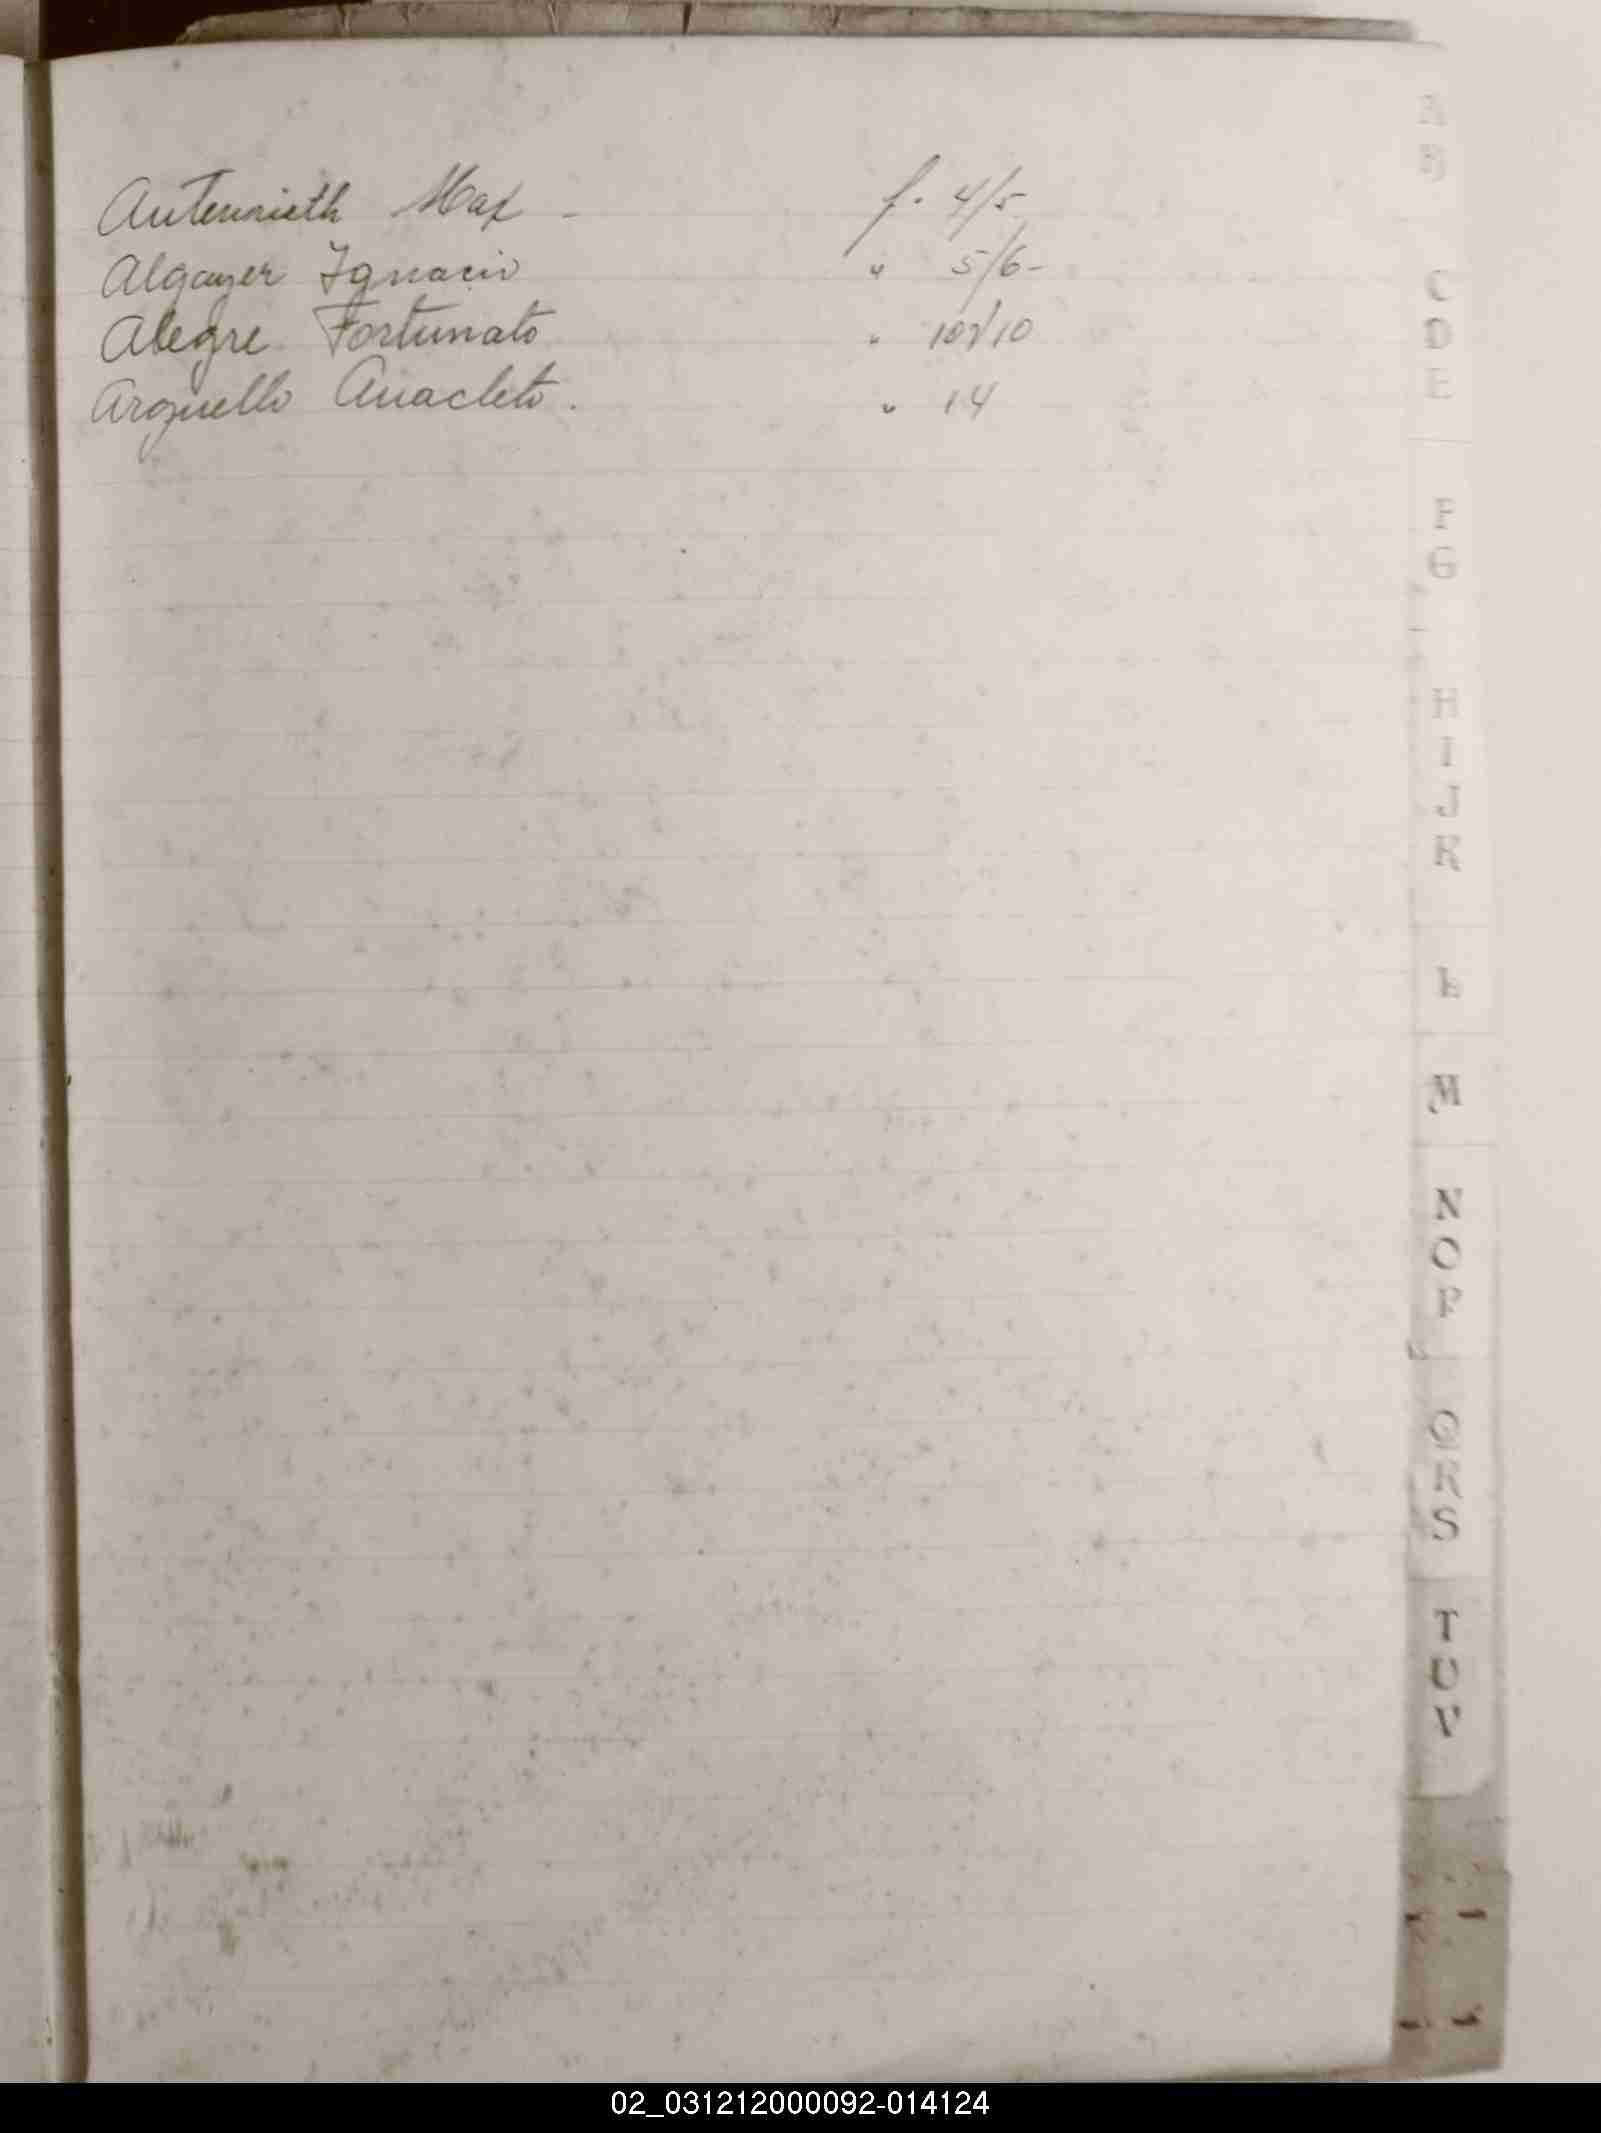 Autenrieth Max - f. 4/5
Algayer Ignacio " 5/6-
Alegre Fortunato "
Arguello Anacleto. " 14
A
B
C
D
E
F
G
H
I
J
K
L
M
N
O
P
Q
R
S
T
U
V
02_031212000092-014124